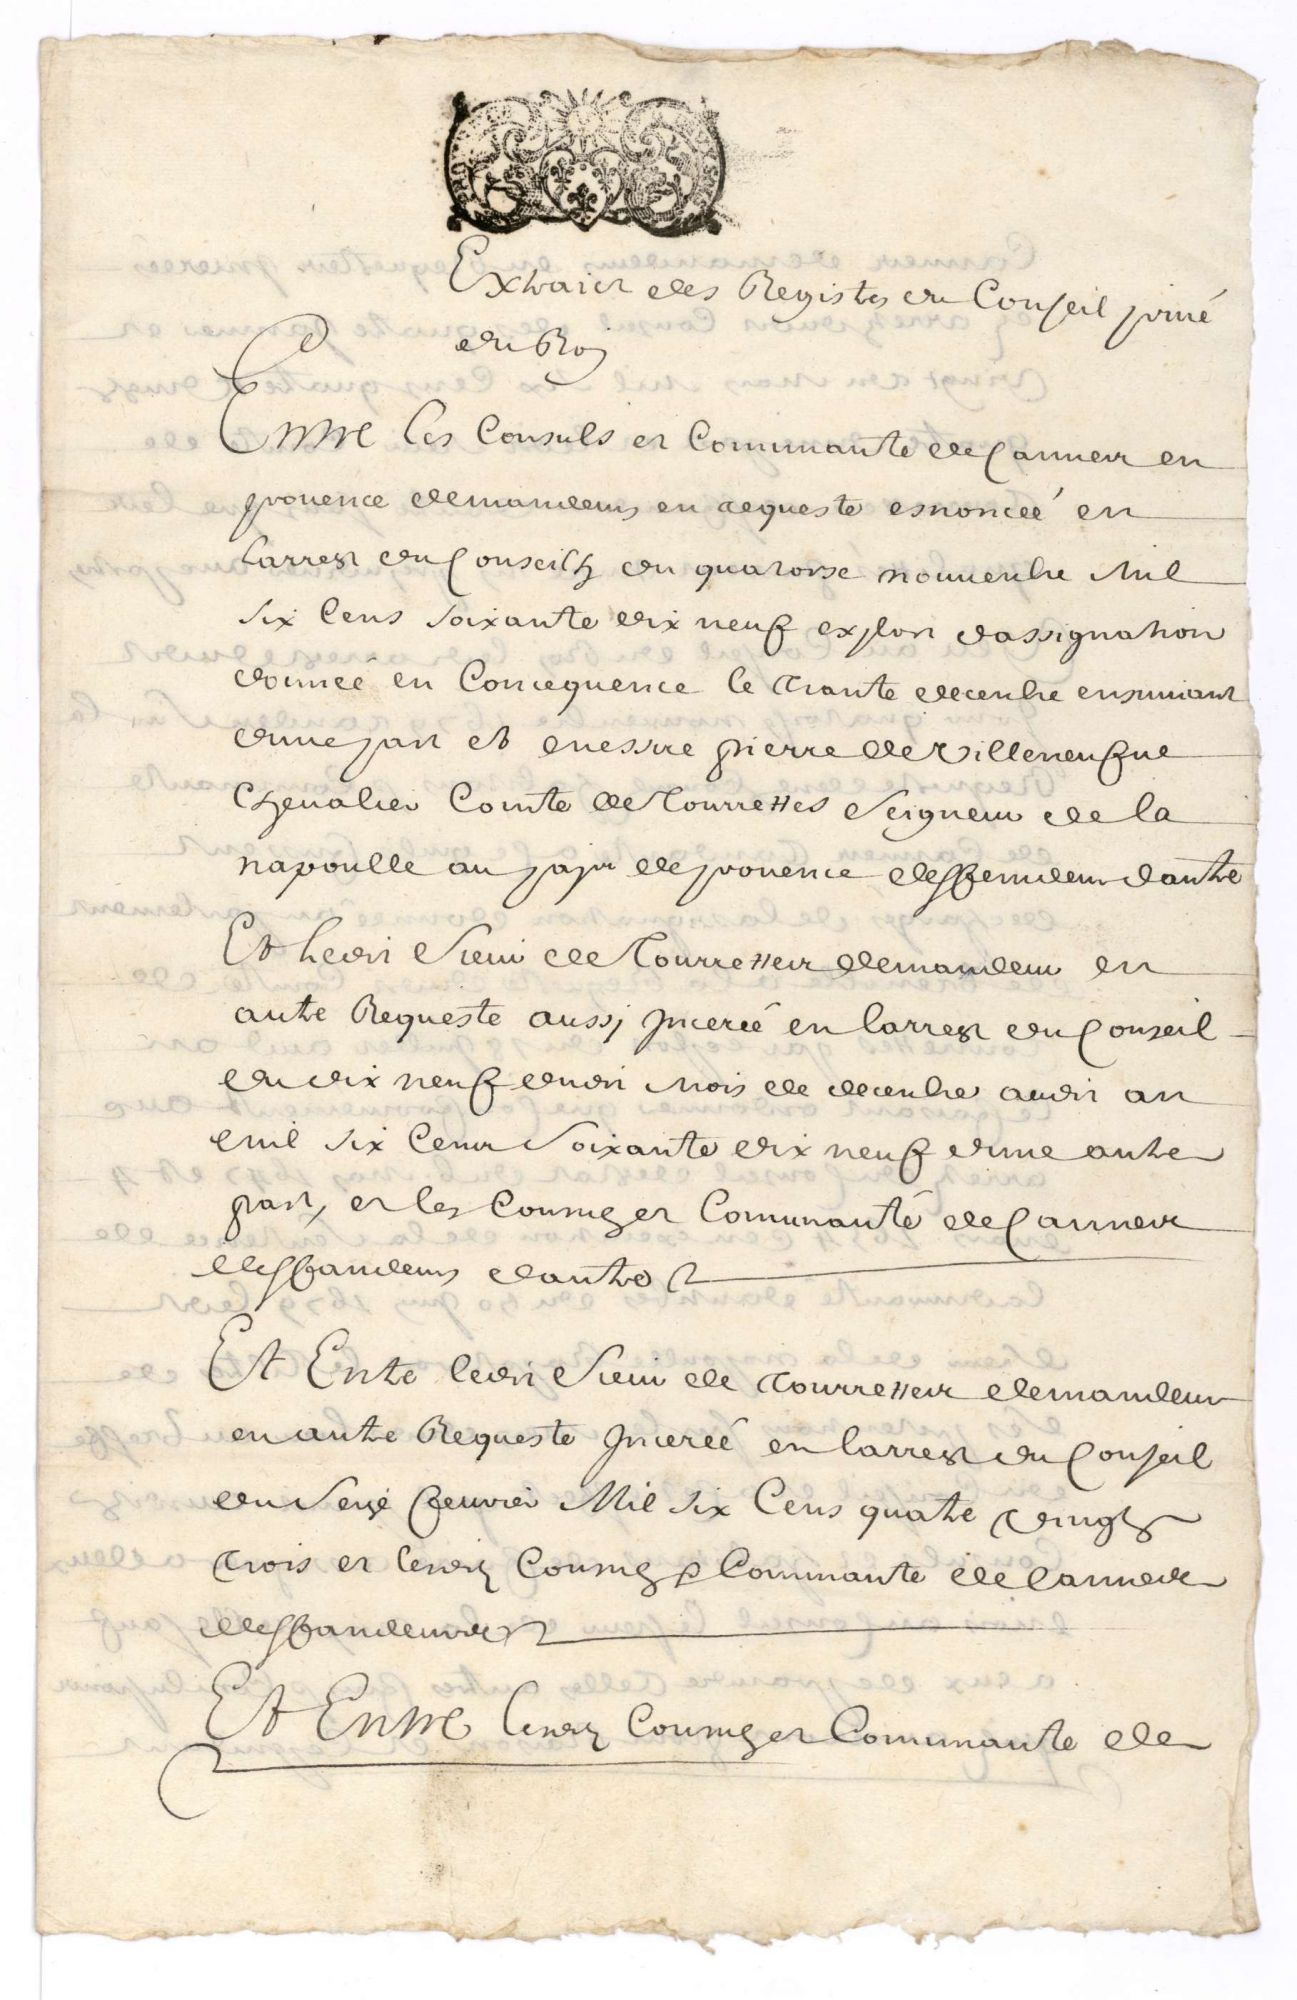 Extraict des Registres du Conseil privé
du Roy
Entre les Consuls et Communauté de Cannes en
provence demandeurs en requeste esnoncée en
larrest du Conseil du quatorse nouembre Mil
six cens soixante dix neuf exploit dassignation
donnée en Consequence le trante decembre ensuiuant
dune part et messire pierre de Villeneufue
Cheualier Comte de Tourrettes Seigneur de la
napoulle au pays de prouence deffendeur dautre
Et ledit Sieur de Tourrettes demandeur en
autre Requeste aussy Jncerée en larrest du Conseil
du dix neuf dudit mois de decembre audit an
mil six cens soixante dix neuf dune autre
part, et les Consuls et Communauté de Cannes
deffandeurs dautre
Et Entre ledit Sieur de Tourrettes demandeur
en autre Requeste Jncerée en larrest du Conseil
du Seize feurier Mil six Cens quatre vingts
trois et lesdits Consuls et Communauté de Cannes
deffandeurs
Et Entre lesdits Consuls et Communauté de